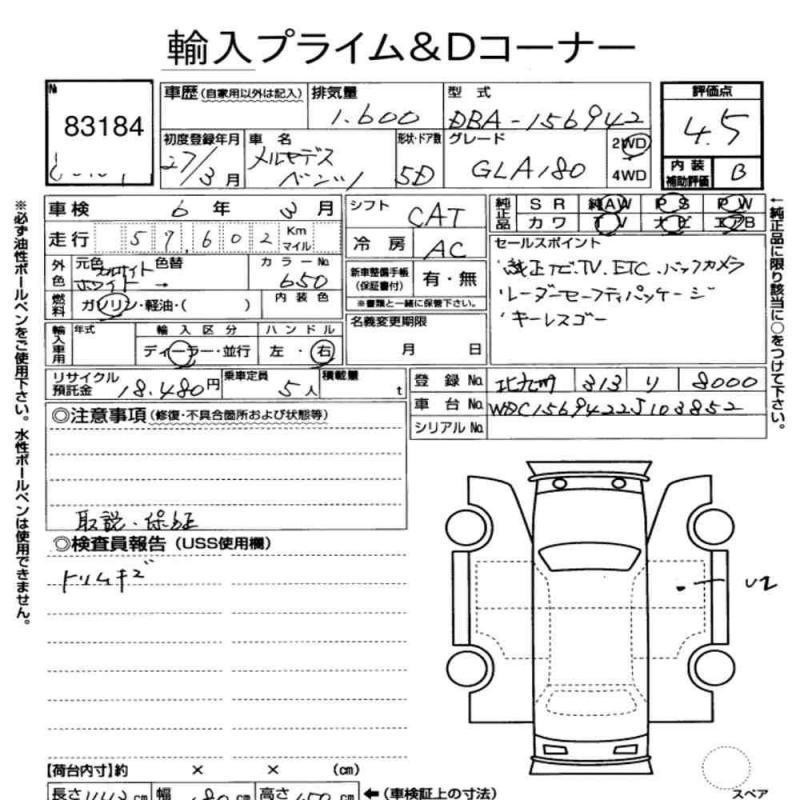 輸入プライム&Dコーナー
№ 83184
車歴 (自家用以外は記入) 排気量 1.600 型式 DBA-156942
初度登録年月 27/3月 車名 メルセデス ベンツ 形状・ドア数 5D グレード GLA180 2WD 4WD
評価点 4.5
内装補助評価 B
車検 6年 3月
走行 57,602 Km マイル
外色 元色 ホワイト 色替 → カラーNo. 650
燃料 ガソリン・軽油・( ) 内装色
輸入車用 年式 輸入区分 ディーラー・並行 ハンドル 左・右
シフト CAT
冷房 AC
新車整備手帳 (保証書付) 有・無
※書類と一緒に保管下さい。
名義変更期限
月 日
純正品 SR 純AW PS PW
カワ TV ナビ エアB
セールスポイント
・純正ナビ.TV.ETC.バックカメラ
・レーダーセーフティパッケージ
・キーレスゴー
リサイクル預託金 18.480円 乗車定員 5人 積載量 t
登録No. 北九州 313 り 8000
車台No. WDC1569422J103852
シリアルNo.
◎注意事項 (修復・不具合箇所および状態等)
取説・保証
◎検査員報告 (USS使用欄)
トリムキズ
U2
【荷台内寸】約 × × (cm)
長さ 幅 高さ ←(車検証上の寸法)
スペア
※必ず油性ボールペンをご使用下さい。水性ボールペンは使用できません。
←純正品に限り該当に○をつけて下さい。